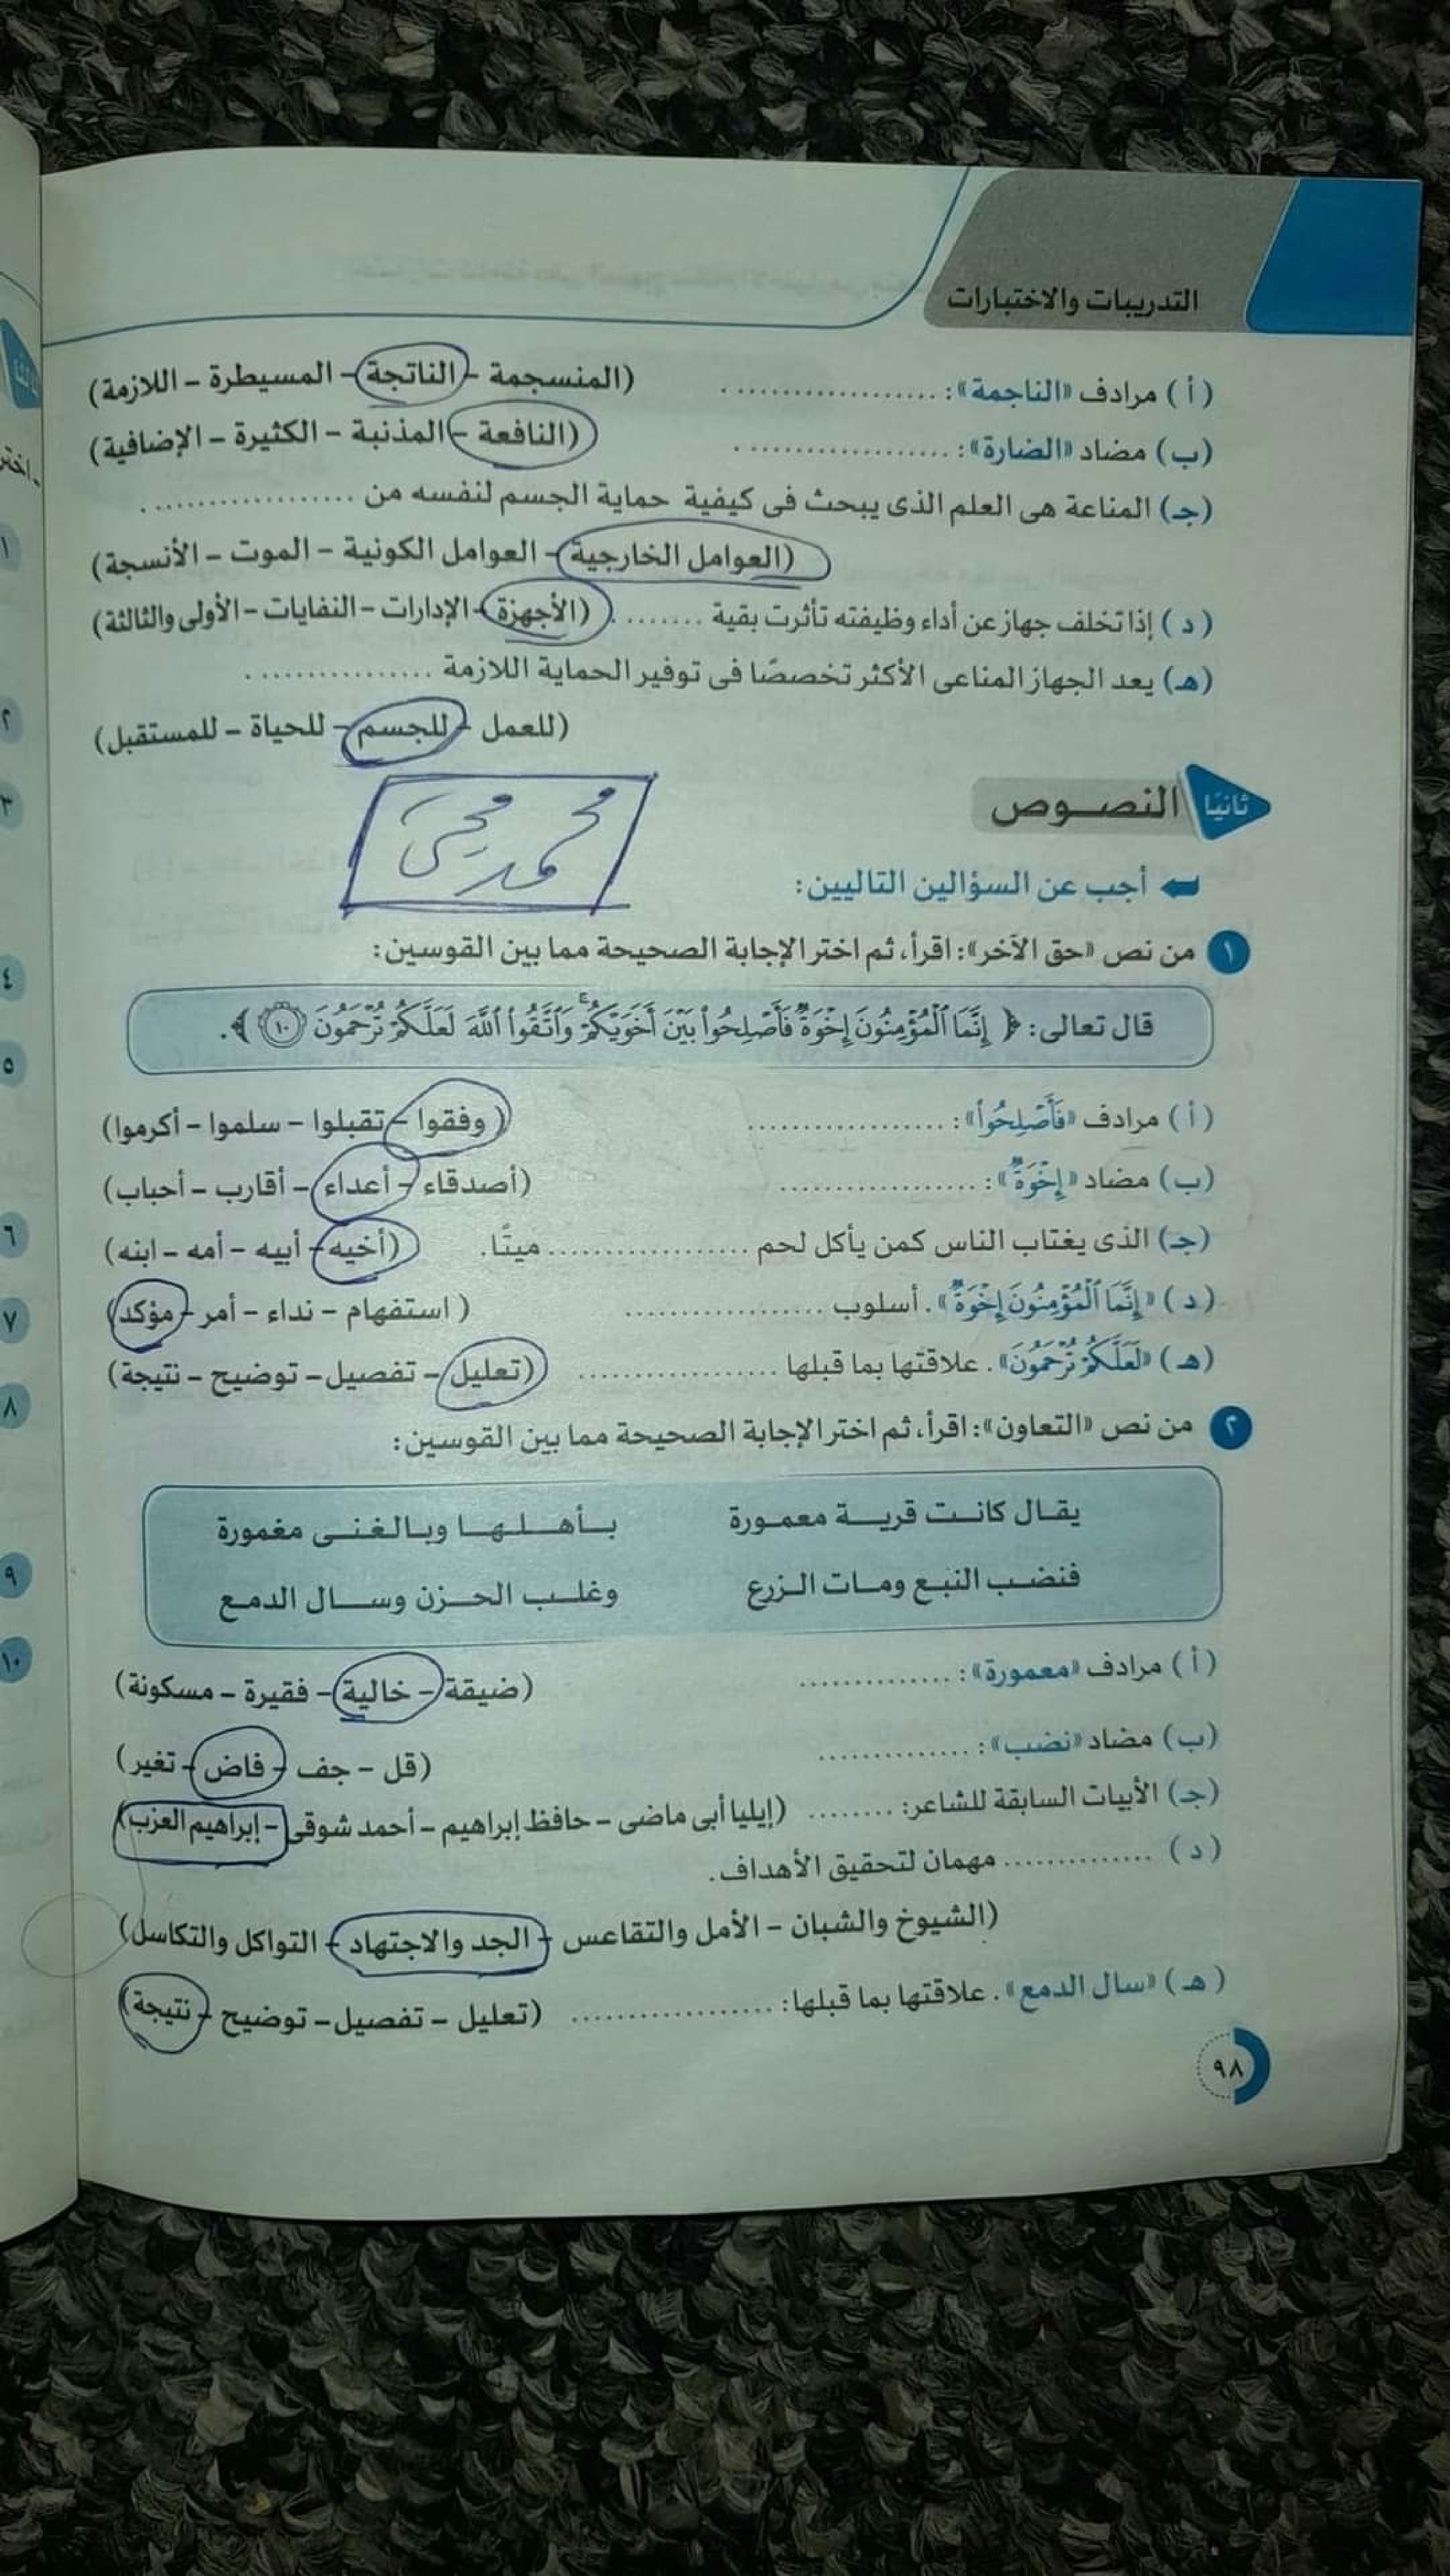 التدريبات والاختبارات
(أ) مرادف «الناجمة»: .................. (المنسجمة – الناتجة – المسيطرة – اللازمة)
(ب) مضاد «الضارة»: .................. (النافعة – المذنبة – الكثيرة – الإضافية)
(جـ) المناعة هى العلم الذى يبحث فى كيفية حماية الجسم لنفسه من ..................
(العوامل الخارجية – العوامل الكونية – الموت – الأنسجة)
(د) إذا تخلف جهاز عن أداء وظيفته تأثرت بقية ........ (الأجهزة – الإدارات – النفايات – الأولى والثالثة)
(هـ) يعد الجهاز المناعى الأكثر تخصصًا فى توفير الحماية اللازمة ................
(للعمل – للجسم – للحياة – للمستقبل)
ثانيًا النصوص
محمد محيى
أجب عن السؤالين التاليين:
١ من نص «حق الآخر»: اقرأ، ثم اختر الإجابة الصحيحة مما بين القوسين:
قال تعالى: ﴿ إِنَّمَا ٱلْمُؤْمِنُونَ إِخْوَةٌ فَأَصْلِحُوا۟ بَيْنَ أَخَوَيْكُمْ ۚ وَٱتَّقُوا۟ ٱللَّهَ لَعَلَّكُمْ تُرْحَمُونَ ١٠ ﴾.
(أ) مرادف «فَأَصْلِحُوا۟»: ................. (وفقوا – تقبلوا – سلموا – أكرموا)
(ب) مضاد «إِخْوَةٌ»: ................. (أصدقاء – أعداء – أقارب – أحباب)
(جـ) الذى يغتاب الناس كمن يأكل لحم ................. ميتًا. (أخيه – أبيه – أمه – ابنه)
(د) «إِنَّمَا ٱلْمُؤْمِنُونَ إِخْوَةٌ». أسلوب ................. (استفهام – نداء – أمر – مؤكد)
(هـ) «لَعَلَّكُمْ تُرْحَمُونَ». علاقتها بما قبلها ................. (تعليل – تفصيل – توضيح – نتيجة)
٢ من نص «التعاون»: اقرأ، ثم اختر الإجابة الصحيحة مما بين القوسين:
يقال كانت قرية معمورة بأهلها وبالغنى مغمورة
فنضب النبع ومات الزرع وغلب الحزن وسال الدمع
(أ) مرادف «معمورة»: .............. (ضيقة – خالية – فقيرة – مسكونة)
(ب) مضاد «نضب»: .............. (قل – جف – فاض – تغير)
(جـ) الأبيات السابقة للشاعر: ........ (إيليا أبى ماضى – حافظ إبراهيم – أحمد شوقى – إبراهيم العزب)
(د) .............. مهمان لتحقيق الأهداف.
(الشيوخ والشبان – الأمل والتقاعس – الجد والاجتهاد – التواكل والتكاسل)
(هـ) «سال الدمع». علاقتها بما قبلها: ................. (تعليل – تفصيل – توضيح – نتيجة)
٩٨
١
٢
٣
٤
٥
٦
٧
٨
٩
١٠